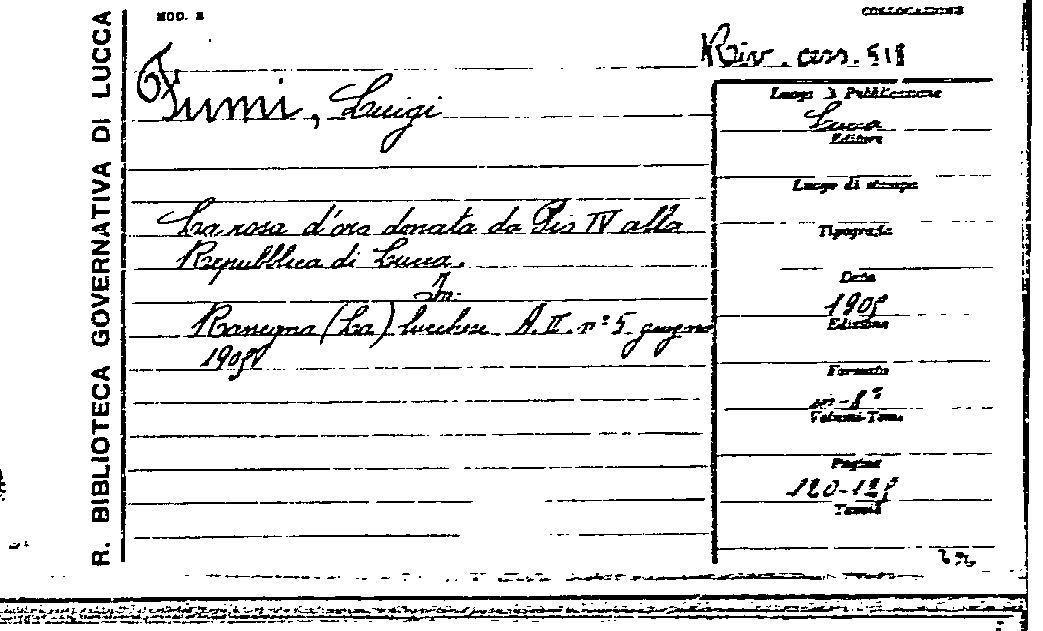 R. BIBLIOTECA GOVERNATIVA DI LUCCA
MOD. E
COLLOCAZIONE
Riv. ann. 518
Fumi, Luigi
La rosa d'oro donata da Pio IV alla
Repubblica di Lucca.
In
Rassegna (La) lucchese A. II. n° 5. giugno
1905
Luogo di Pubblicazione
Lucca
Editore
Luogo di stampa
Tipografia
Data
1905
Edizione
Formato
in-8°
Volumi-Tomi
Pagine
120-125
Tavole